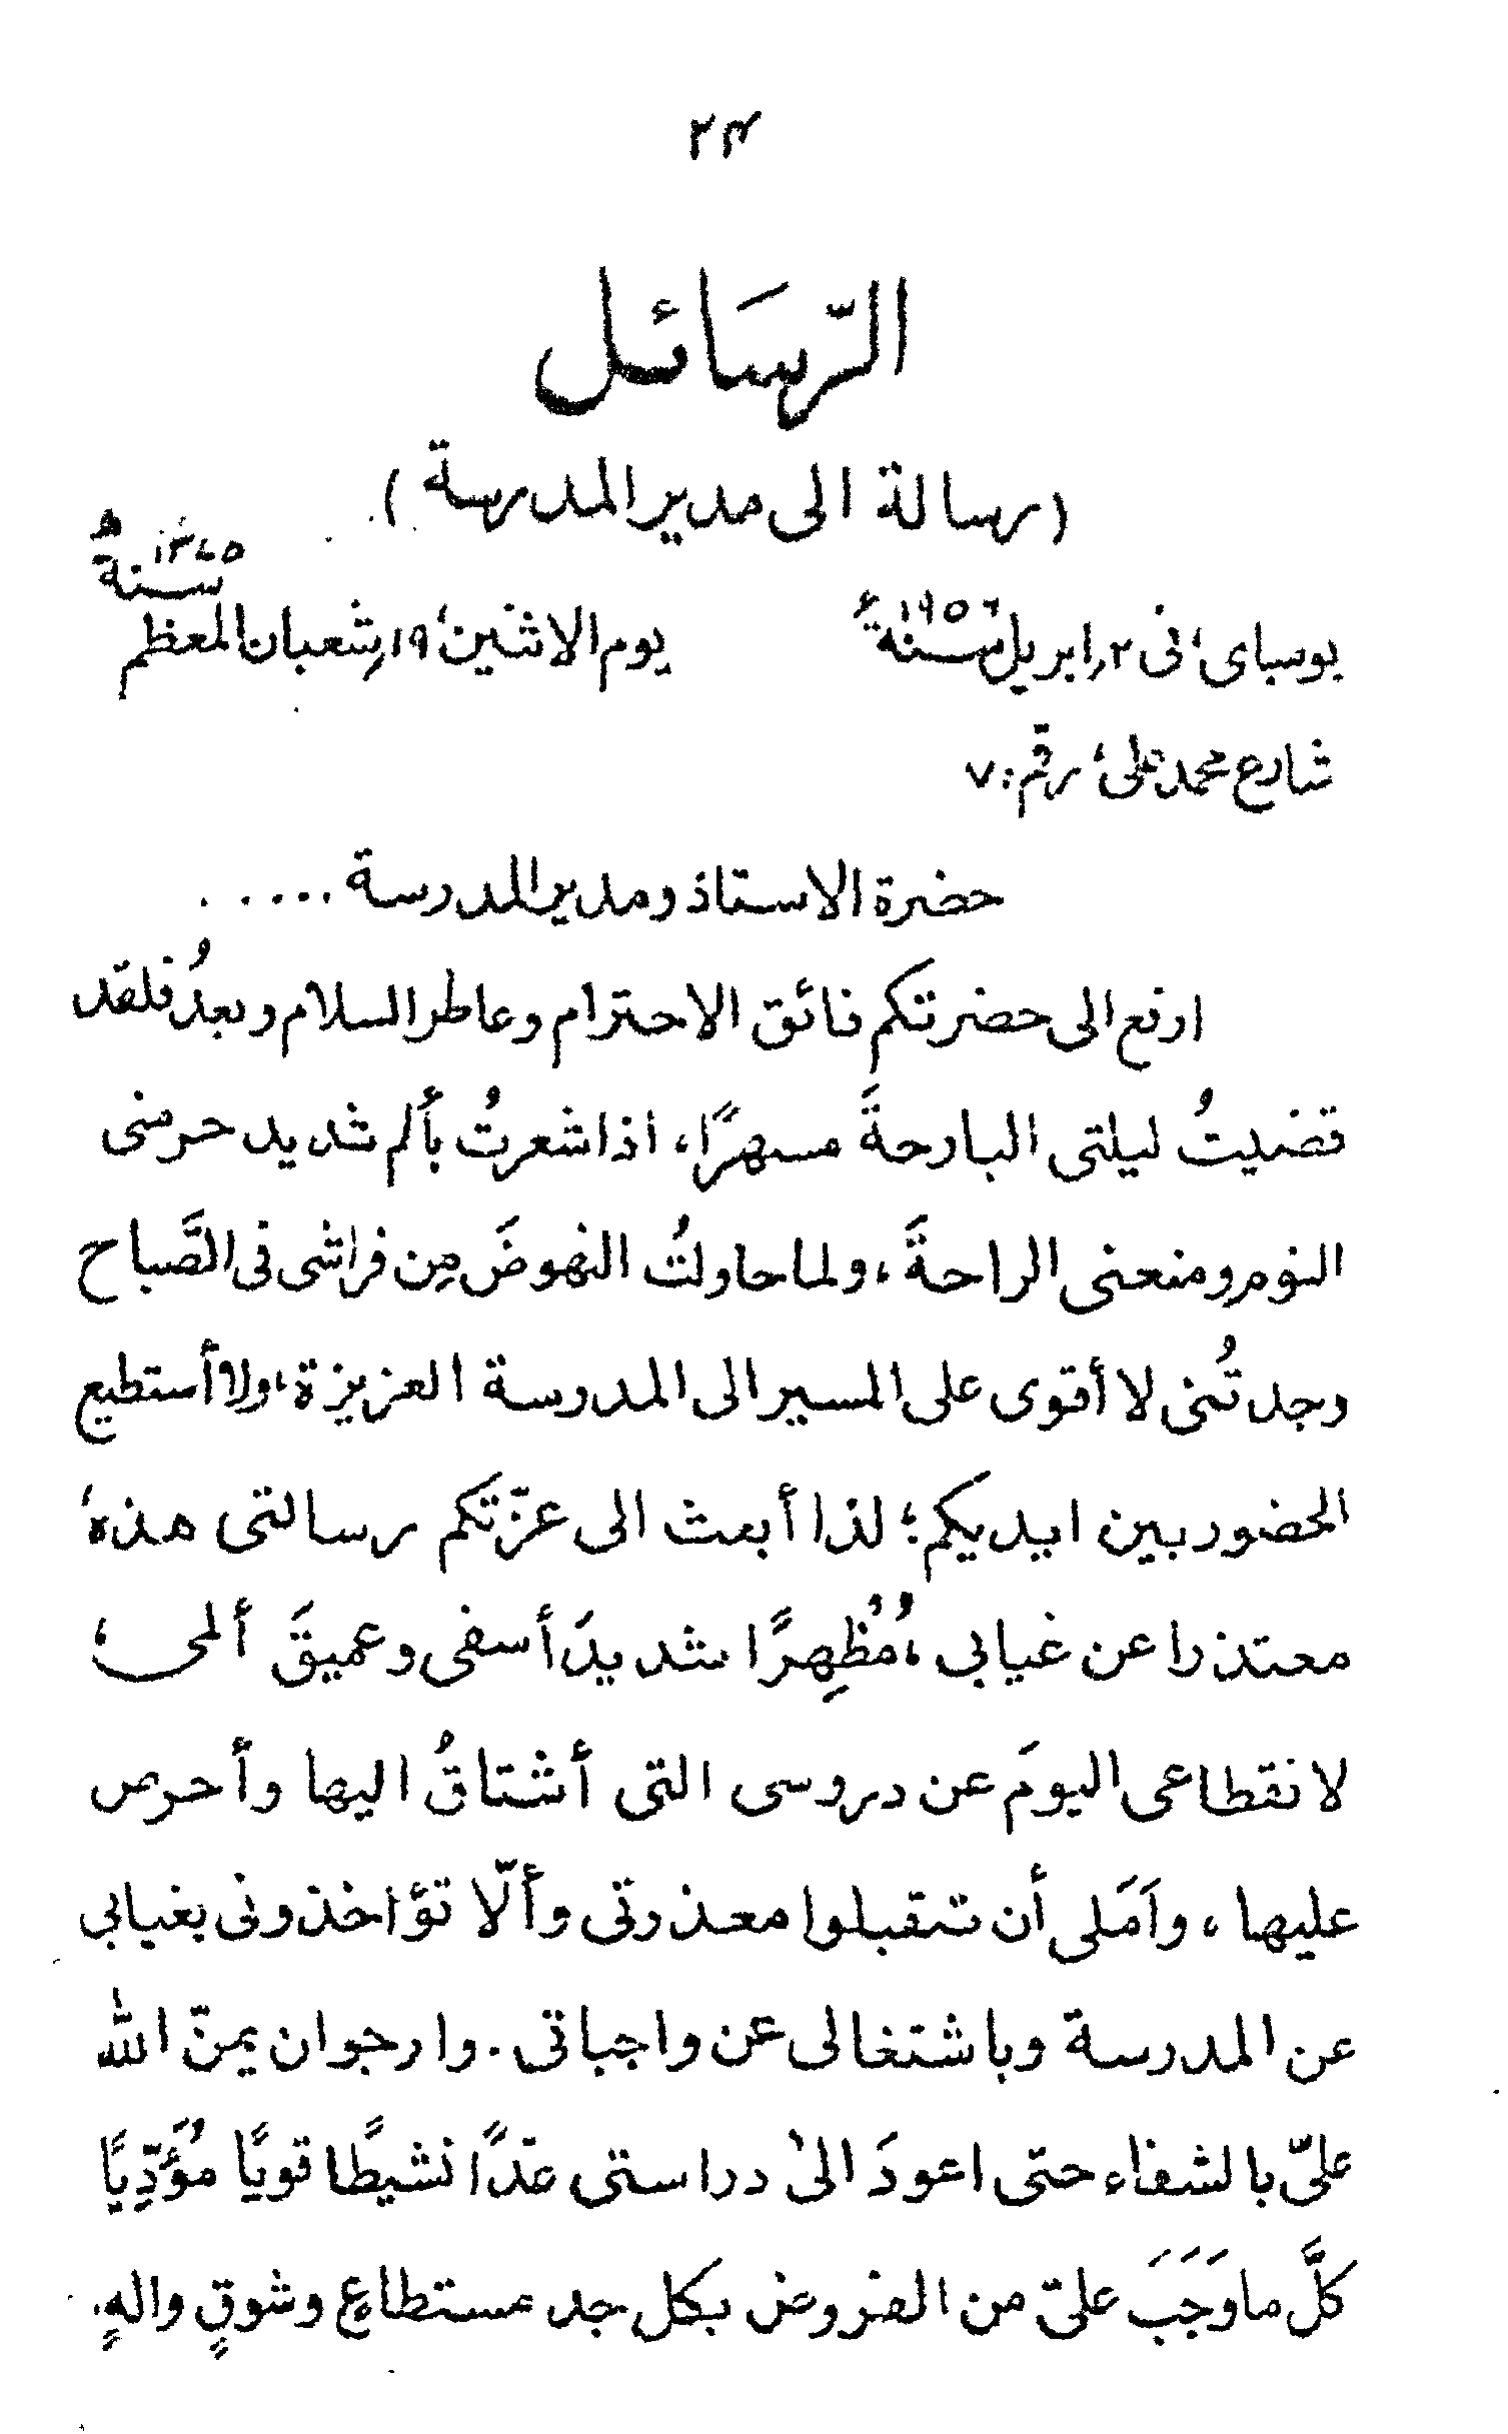 ٢٤
الرّسَائل
(رسالة الى مدير المدرسة)
بومباى؛ فى ٢ر ابريل سنة ١٩٥٦ء يوم الاثنين؛ ١٩ر شعبان المعظم سنة ١٣٧٥ھ
شارع محمد على؛ رقم: ٧
حضرة الاستاذ ومدير المدرسة .....
ارفع الى حضرتكم فائق الاحترام وعاطر السلام وبعدُ فلقد
قضيتُ ليلتى البارحةَ مسهرًا، اذا شعرتُ بألم شديد حرمنى
النوم ومنعنى الراحةَ، ولما حاولتُ النهوضَ مِن فراشى فى الصَّباح
وجدتُنى لا أقوى على المسير الى المدرسة العزيزة، ولا أستطيع
الحضور بين ايديكم؛ لذا أبعث الى عزّتكم رسالتى هذه،
معتذرا عن غيابي، مُظْهِرًا شديدَ أسفى وعميقَ ألمى،
لانقطاعى اليومَ عن دروسى التى أشتاقُ اليها وأحرص
عليها، وآمَلى أن تتقبلوا معذرتى وألّا تؤاخذونى بغيابى
عن المدرسة وباشتغالى عن واجباتى. وارجو ان يمنّ الله
علىّ بالشفاء حتى اعودَ الىٰ دراستى غدًا نشيطًا قويًا مُؤَدِّيًا
كلَّ ما وَجَبَ علىّ من الفروض بكل جد مستطاعٍ وشوقٍ والهٍ.